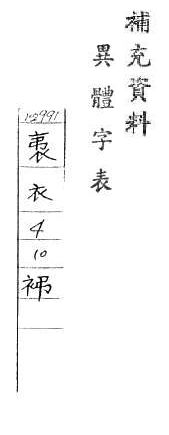 補充資料
異體字表
12991
衣
4
10